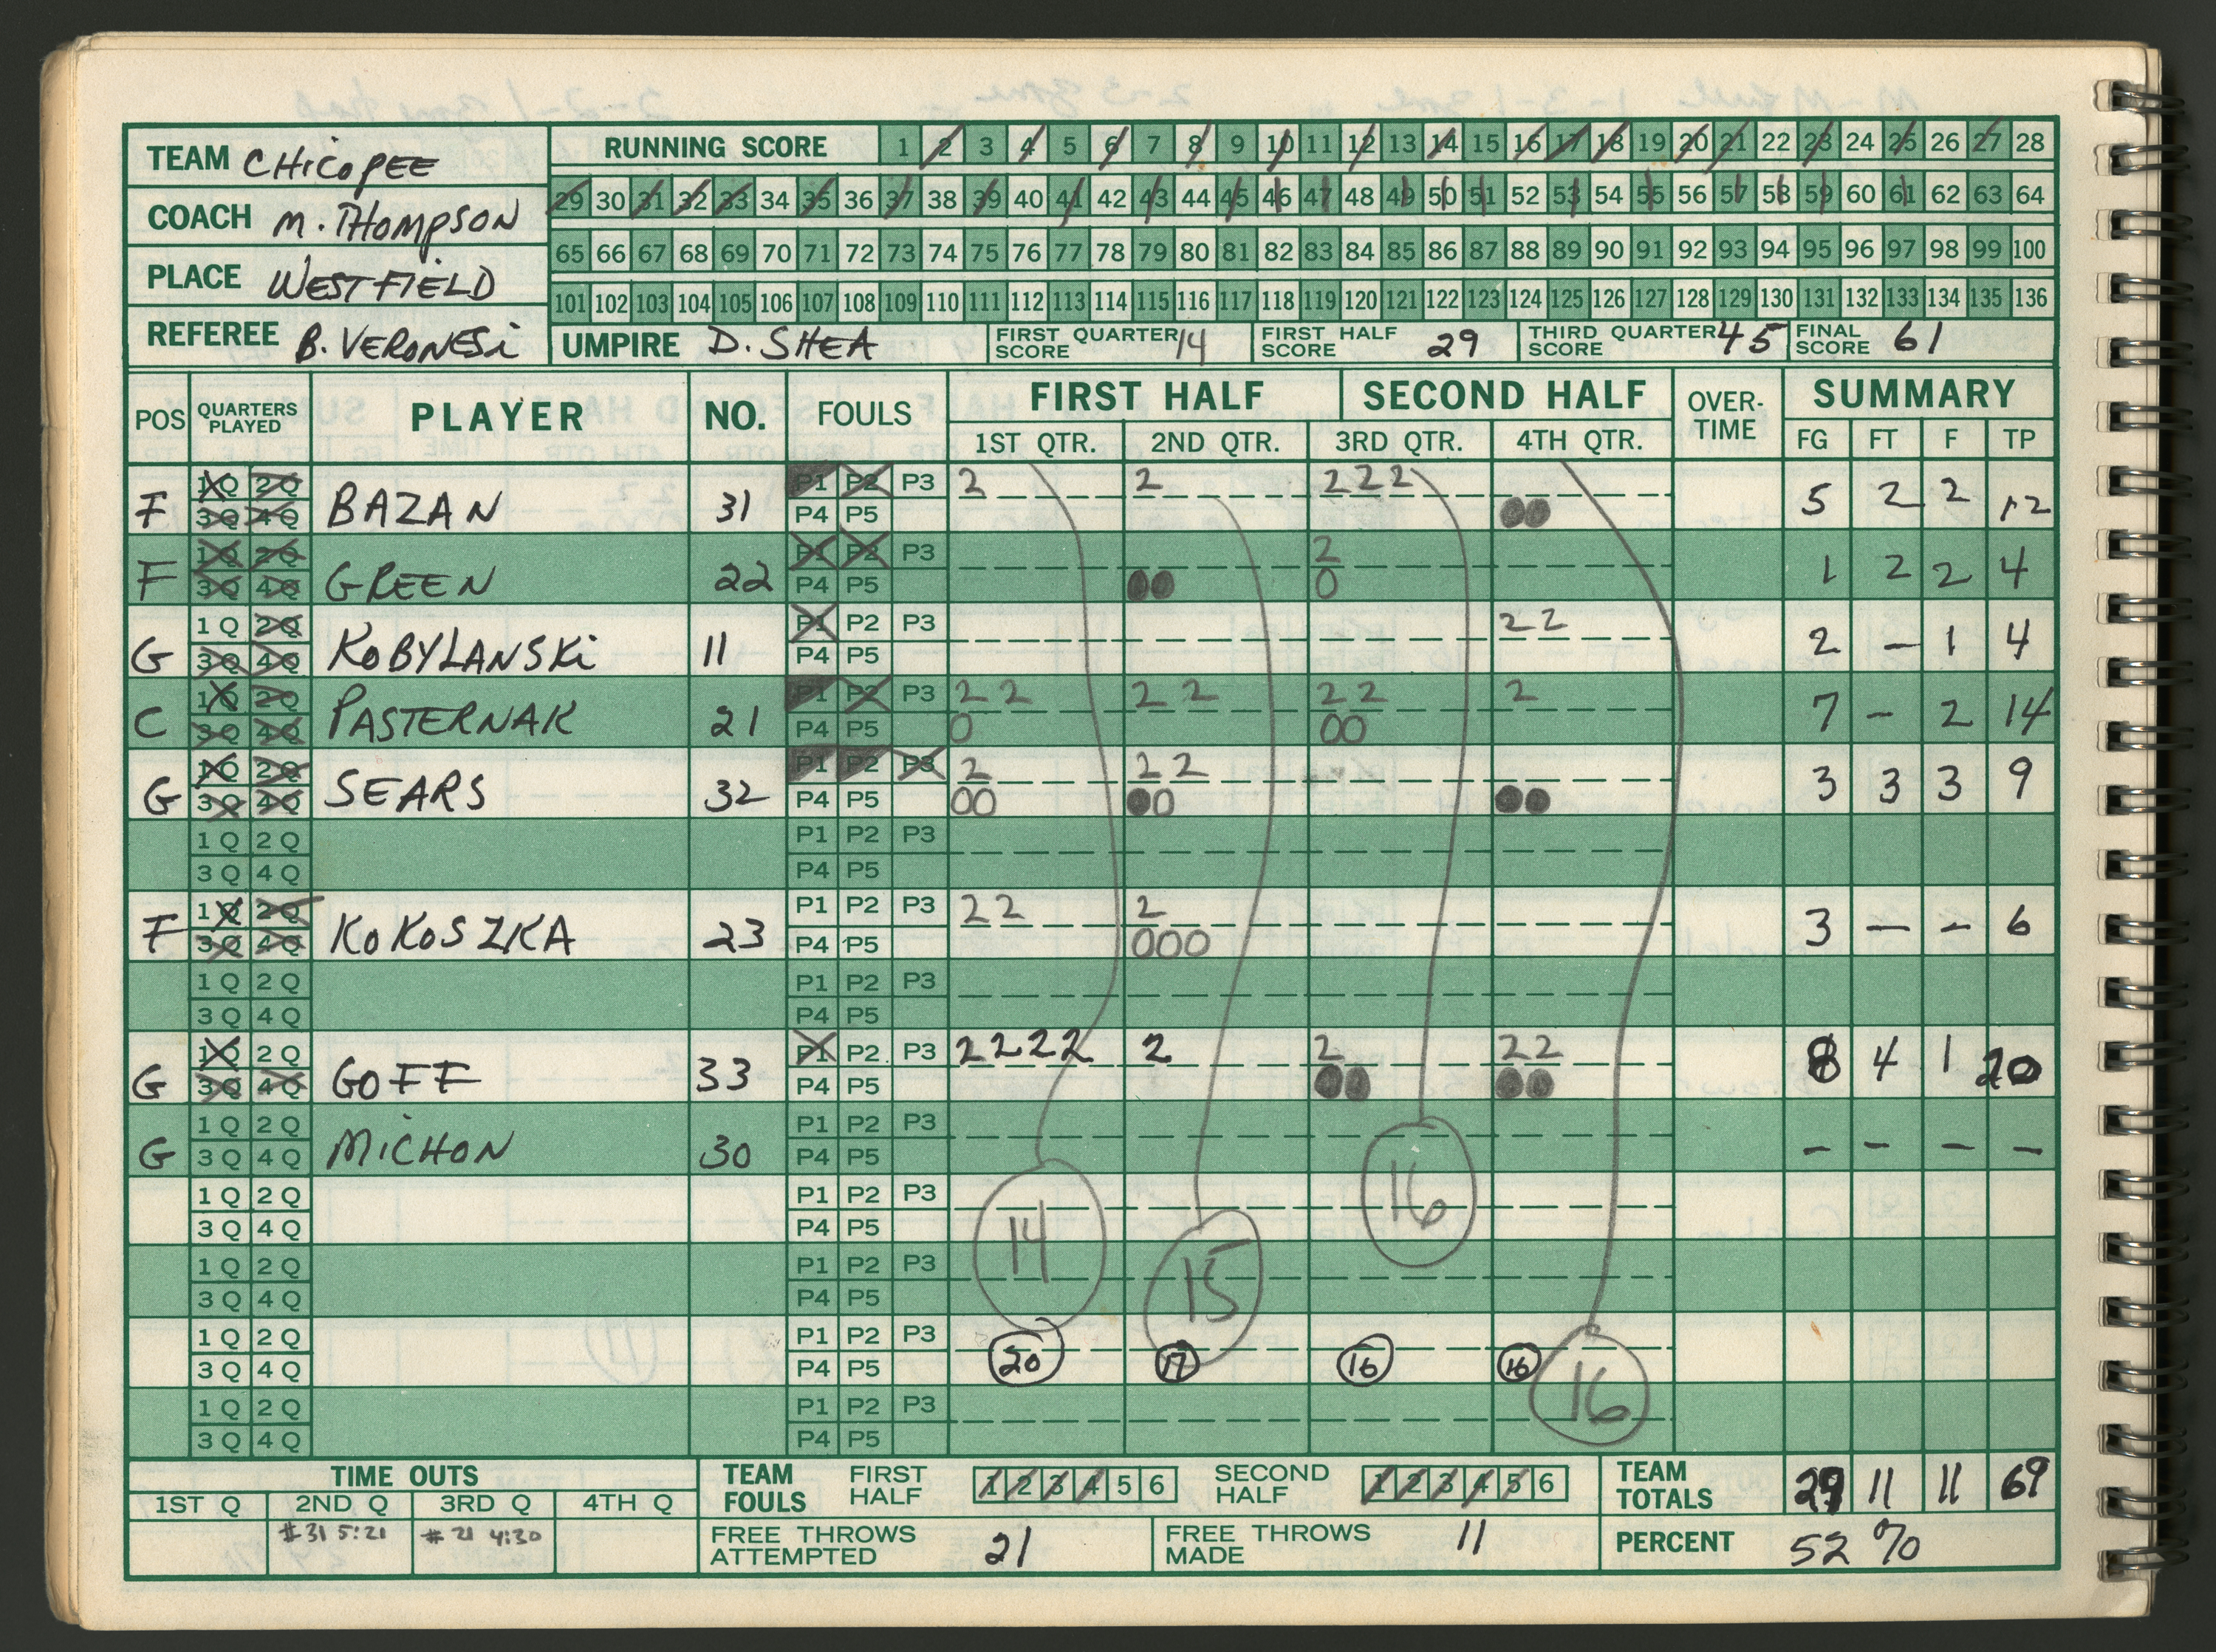 TEAM CHICOPEE
COACH M. THOMPSON
PLACE WESTFIELD
REFEREE B. VERONESI
RUNNING SCORE 1 2 3 4 5 6 7 8 9 10 11 12 13 14 15 16 17 18 19 20 21 22 23 24 25 26 27 28
29 30 31 32 33 34 35 36 37 38 39 40 41 42 43 44 45 46 47 48 49 50 51 52 53 54 55 56 57 58 59 60 61 62 63 64
65 66 67 68 69 70 71 72 73 74 75 76 77 78 79 80 81 82 83 84 85 86 87 88 89 90 91 92 93 94 95 96 97 98 99 100
101 102 103 104 105 106 107 108 109 110 111 112 113 114 115 116 117 118 119 120 121 122 123 124 125 126 127 128 129 130 131 132 133 134 135 136
UMPIRE D. SHEA FIRST QUARTER SCORE 14 FIRST HALF SCORE 29 THIRD QUARTER SCORE 45 FINAL SCORE 61
POS QUARTERS PLAYED PLAYER NO. FOULS FIRST HALF SECOND HALF OVER-TIME SUMMARY
1ST QTR. 2ND QTR. 3RD QTR. 4TH QTR. FG FT F TP
1Q 2Q P1 P2 P3 2 2 2 2 2
F 3Q 4Q BAZAN 31 P4 P5 00 5 2 2 12
1Q 2Q P1 P2 P3 2
F 3Q 4Q GREEN 22 P4 P5 00 0 1 2 2 4
1Q 2Q P1 P2 P3 2 2
G 3Q 4Q KOBYLANSKI 11 P4 P5 2 - 1 4
1Q 2Q P1 P2 P3 2 2 2 2 2 2 2
C 3Q 4Q PASTERNAK 21 P4 P5 0 00 7 - 2 14
1Q 2Q P1 P2 P3 2 2 2
G 3Q 4Q SEARS 32 P4 P5 00 00 00 3 3 3 9
1Q 2Q P1 P2 P3
3Q 4Q P4 P5
1Q 2Q P1 P2 P3 2 2 2
F 3Q 4Q KOKOSZKA 23 P4 P5 000 3 - - 6
1Q 2Q P1 P2 P3
3Q 4Q P4 P5
1Q 2Q P1 P2 P3 2 2 2 2 2 2 2 2
G 3Q 4Q GOFF 33 P4 P5 00 00 8 4 1 20
1Q 2Q P1 P2 P3
G 3Q 4Q MICHON 30 P4 P5 - - - -
1Q 2Q P1 P2 P3 16
3Q 4Q P4 P5 14
1Q 2Q P1 P2 P3 15
3Q 4Q P4 P5
1Q 2Q P1 P2 P3
3Q 4Q P4 P5 20 17 16 16
1Q 2Q P1 P2 P3 16
3Q 4Q P4 P5
TIME OUTS
1ST Q 2ND Q 3RD Q 4TH Q
#31 5:21 #21 4:30
TEAM FOULS FIRST HALF 1 2 3 4 5 6 SECOND HALF 1 2 3 4 5 6 TEAM TOTALS 29 11 11 69
FREE THROWS ATTEMPTED 21 FREE THROWS MADE 11 PERCENT 52%